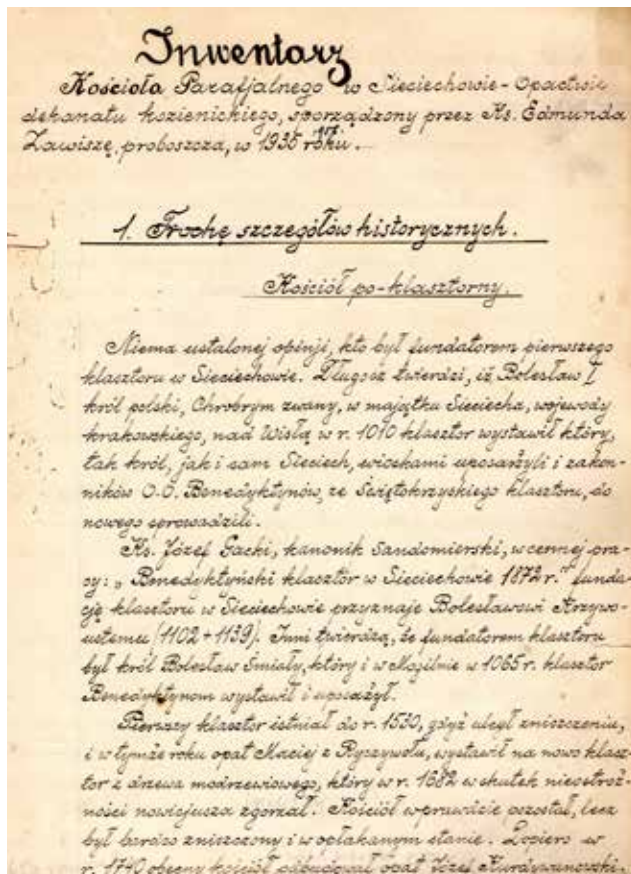 Inwentarz
Kościoła Parafjalnego w Sieciechowie-Opactwie
dekanatu kozienickiego, sporządzony przez Ks. Edmunda
Zawiszę, proboszcza, w 1935 roku.
1. Trochę szczegółów historycznych.
Kościół po-klasztorny.
Niema ustalonej opinji, kto był fundatorem pierwszego
klasztoru w Sieciechowie. Długosz twierdzi, iż Bolesław I
król polski, Chrobrym zwany, w majątku Sieciecha, wojewody
krakowskiego, nad Wisłą w r. 1010 klasztor wystawił który,
tak król, jak i sam Sieciech, wioskami uposażyli i zakon-
ników O.O. Benedyktynów, ze Świętokrzyskiego klasztoru, do
nowego sprowadzili.
Ks. Józef Gacki, kanonik Sandomierski, w cennej pra-
cy: „Benedyktyński klasztor w Sieciechowie 1872 r." funda-
cję klasztoru w Sieciechowie przyznaje Bolesławowi Krzywo-
ustemu (1102+1139). Inni twierdzą, że fundatorem klasztoru
był król Bolesław Śmiały, który i w Mogilnie w 1065 r. klasztor
Benedyktynom wystawił i uposażył.
Pierwszy klasztor istniał do r. 1530, gdyż uległ zniszczeniu,
i w tymże roku opat Maciej z Ryczywołu, wystawił na nowo klasz-
tor z drzewa modrzewiowego, który w r. 1682 wskutek nieostroż-
ności nowicjusza zgorzał. Kościół wprawdzie pozostał, lecz
był bardzo zniszczony i w opłakanym stanie. Dopiero w
r. 1740 obecny kościół odbudował opat Józef Kurdwanowski.